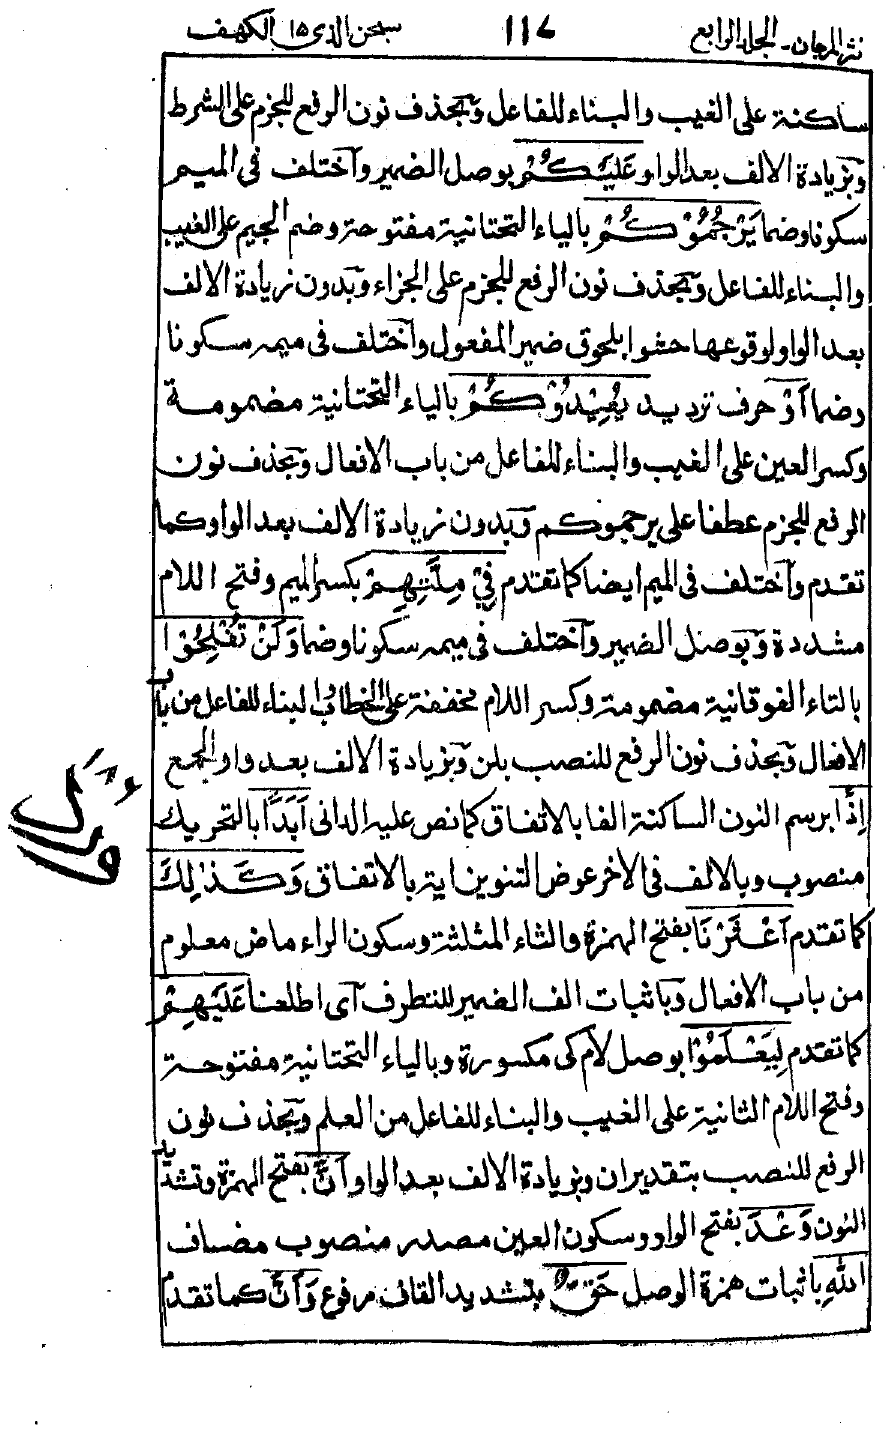 نثر المرجان - الجلد الرابع ١١٧ سبحن الذى ١٥ الكهف
ساكنة على الغيب والبناء للفاعل وبحذف نون الرفع للجزم على الشرط
وبزيادة الالف بعد الواو عَلَيْكُمْ بوصل الضمير واختلف فى الميم
سكونا وضما يَرْجُمُوْكُمْ بالياء التحتانية مفتوحة وضم الجيم على الغيب
والبناء للفاعل وبحذف نون الرفع للجزم على الجزاء وبدون زيادة الالف
بعد الواو لوقوعها حشوا بلحوق ضمير المفعول واختلف فى ميمه سكونا
وضما أَوْ حرف ترديد يُعِيْدُوْكُمْ بالياء التحتانية مضمومة
وكسر العين على الغيب والبناء للفاعل من باب الافعال وبحذف نون
الرفع للجزم عطفا على يرجموكم وبدون زيادة الالف بعد الواو كما
تقدم واختلف فى الميم ايضا كما تقدم فِيْ مِلَّتِهِمْ بكسر الميم وفتح اللام
مشددة وبوصل الضمير واختلف فى ميمه سكونا وضما وَلَنْ تُفْلِحُوْا
بالتاء الفوقانية مضمومة وكسر اللام مخففة على الخطاب والبناء للفاعل من باب
الافعال وبحذف نون الرفع للنصب بلن وبزيادة الالف بعد واو الجمع
إِذًا برسم النون الساكنة الفا بالاتفاق كما نص عليه الدانى أَبَدًا بالتحريك
منصوب وبالالف فى الاخر عوض التنوين اية بالاتفاق وَكَذٰلِكَ
كما تقدم أَعْثَرْنَا بفتح الهمزة والثاء المثلثة وسكون الراء ماض معلوم
من باب الافعال وباثبات الف الضمير للتطرف اى اطلعنا عَلَيْهِمْ
كما تقدم لِيَعْلَمُوْا بوصل لام كى مكسورة وبالياء التحتانية مفتوحة
وفتح اللام الثانية على الغيب والبناء للفاعل من العلم وبحذف نون
الرفع للنصب بتقدير ان وبزيادة الالف بعد الواو أَنَّ بفتح الهمزة وتشديد
النون وَعْدَ بفتح الواو وسكون العين مصدر منصوب مضاف
اللهِ باثبات همزة الوصل حَقٌّ بتشديد القاف مرفوع وَأَنَّ كما تقدم